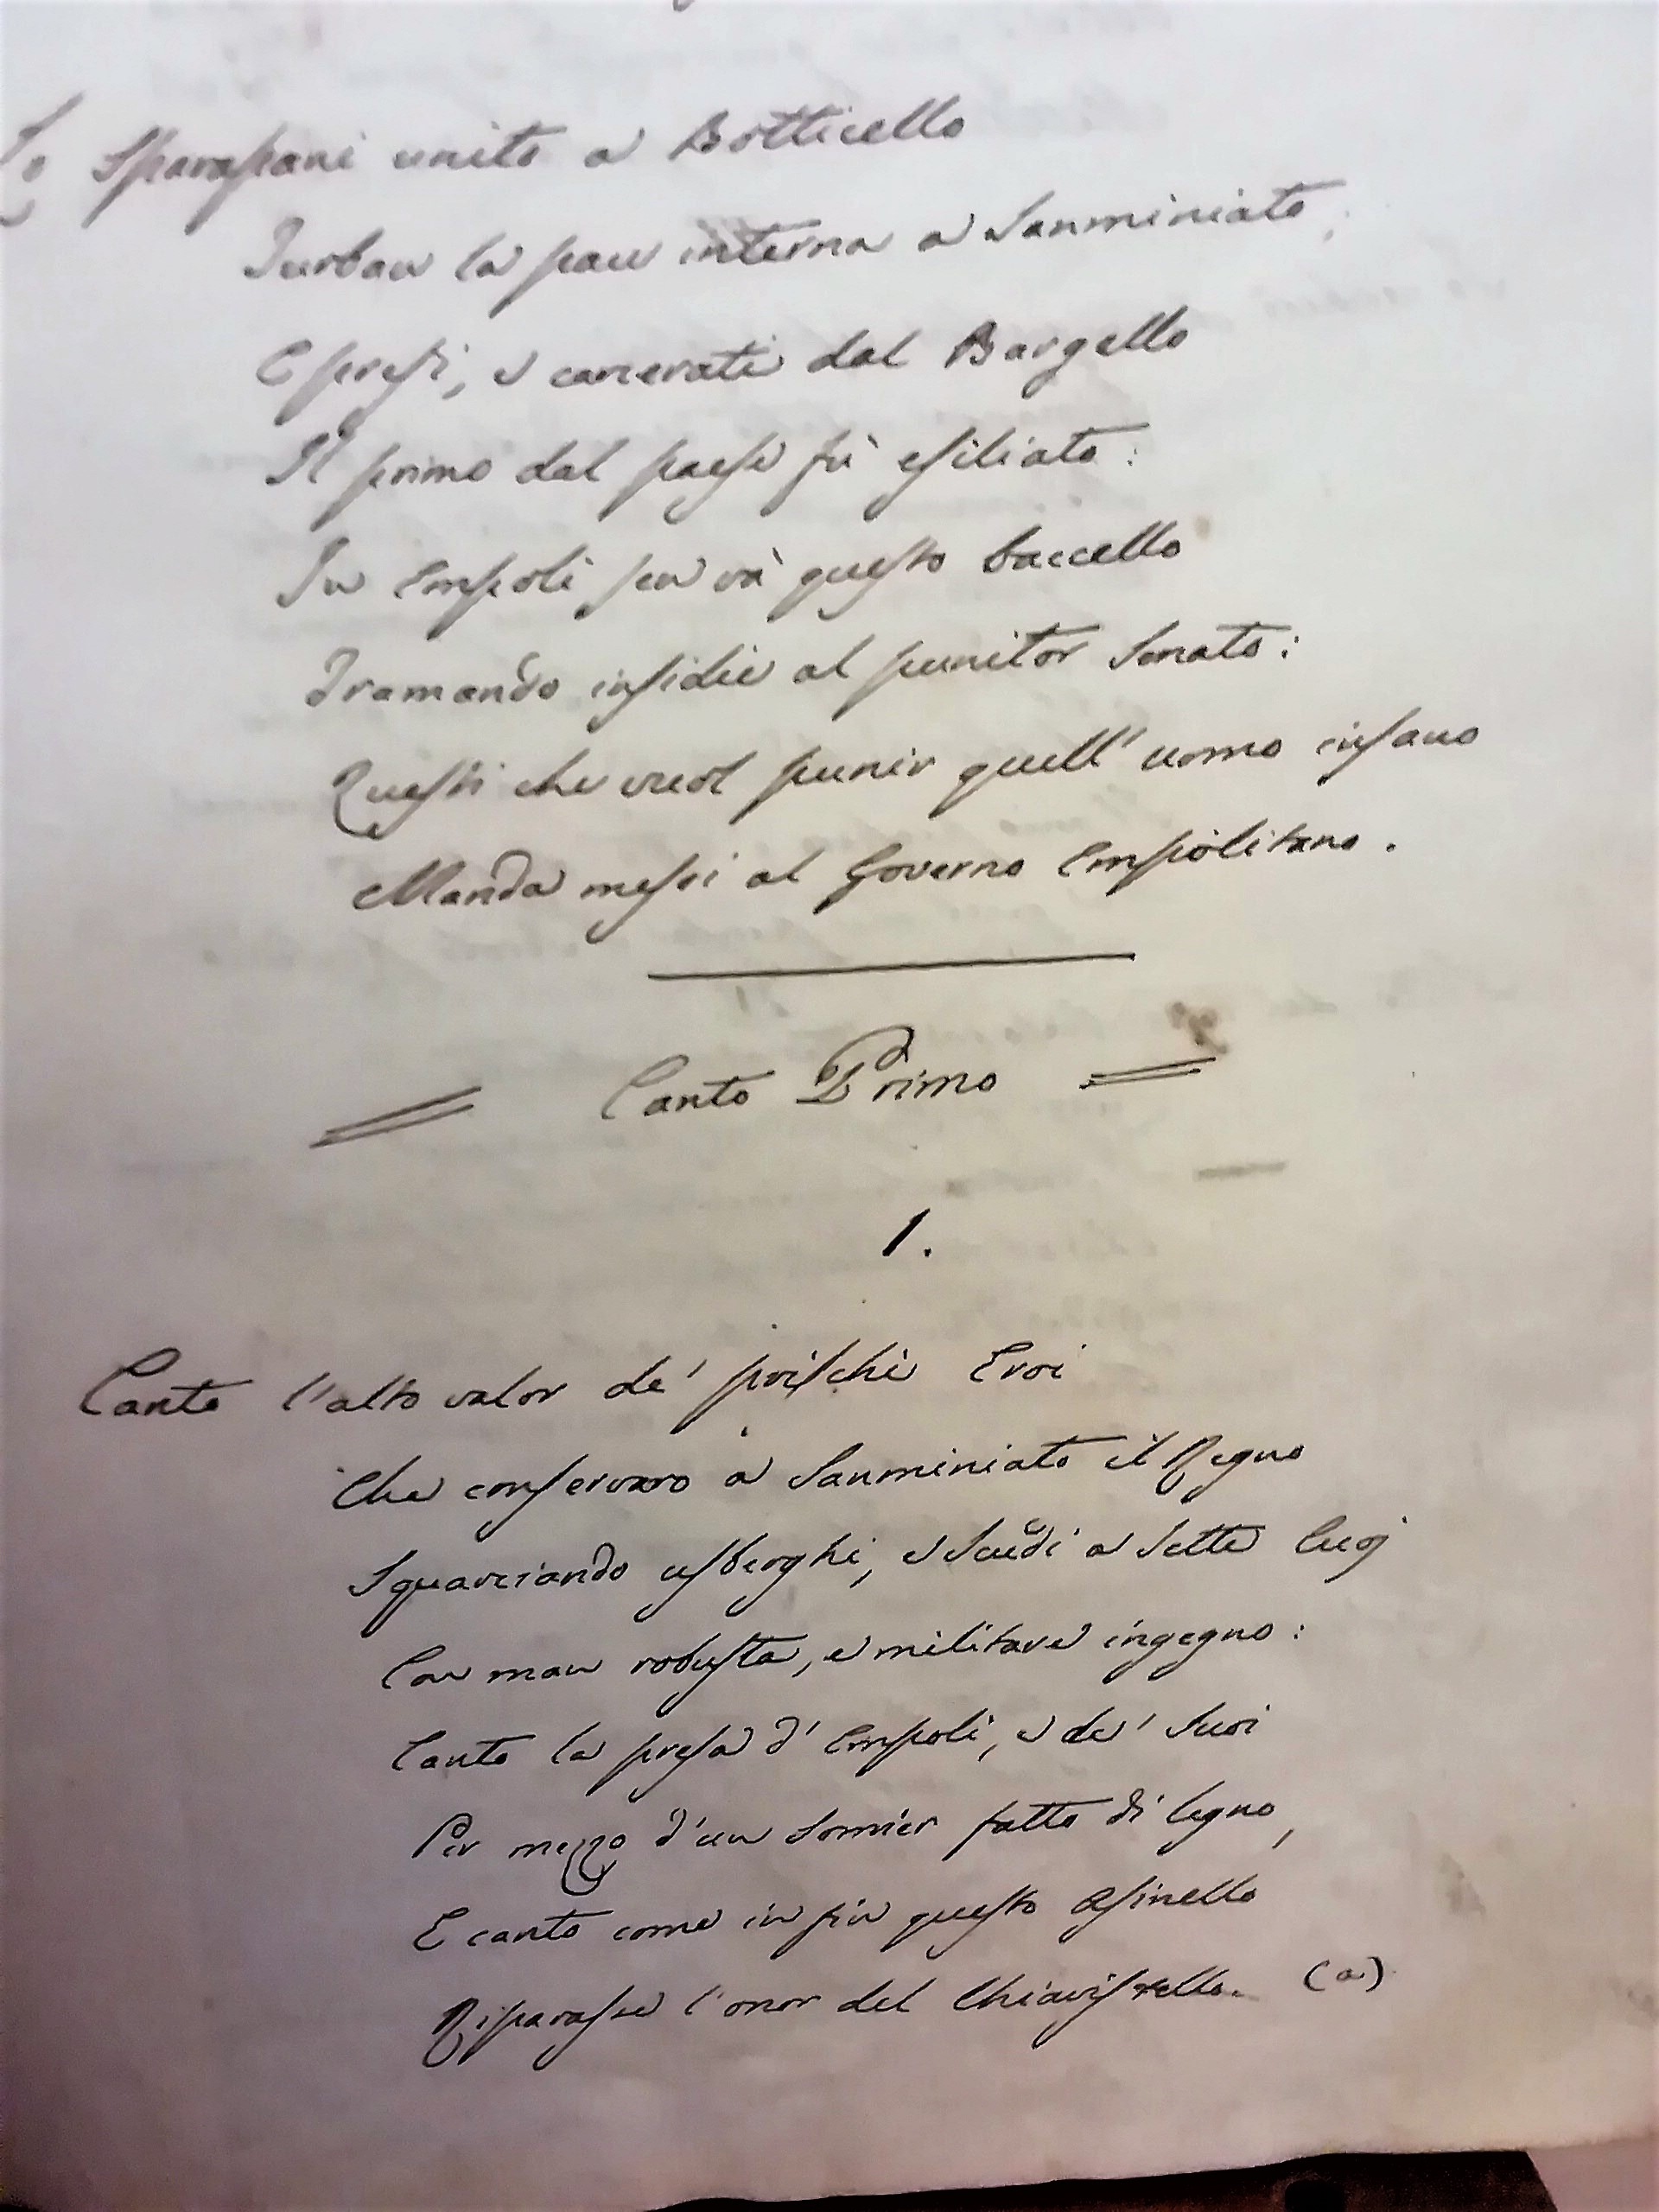 Lo Sparapani unito a Botticello
Turban la pace interna a Sanminiato,
E presi, e carcerati dal Bargello
Il primo dal paese fù esiliato:
In Empoli sen và questo baccello
Tramando insidie al punitor Senato:
Questi che vuol punir quell' uomo insano
Manda messi al Governo Empolitano.
Canto Primo
1.
Canto l'alto valor de' prischi Eroi
Che conservaro a Sanminiato il Regno
Squarciando usberghi, e Scudi a Sette
Con man robusta, e militare ingegno:
Canto la presa d' Empoli, e de' Suoi
Per mezzo d'un Somier fatto di legno,
E canto come in fin questo Asinello
Riparasse l'onor del Chiavistello. (a)